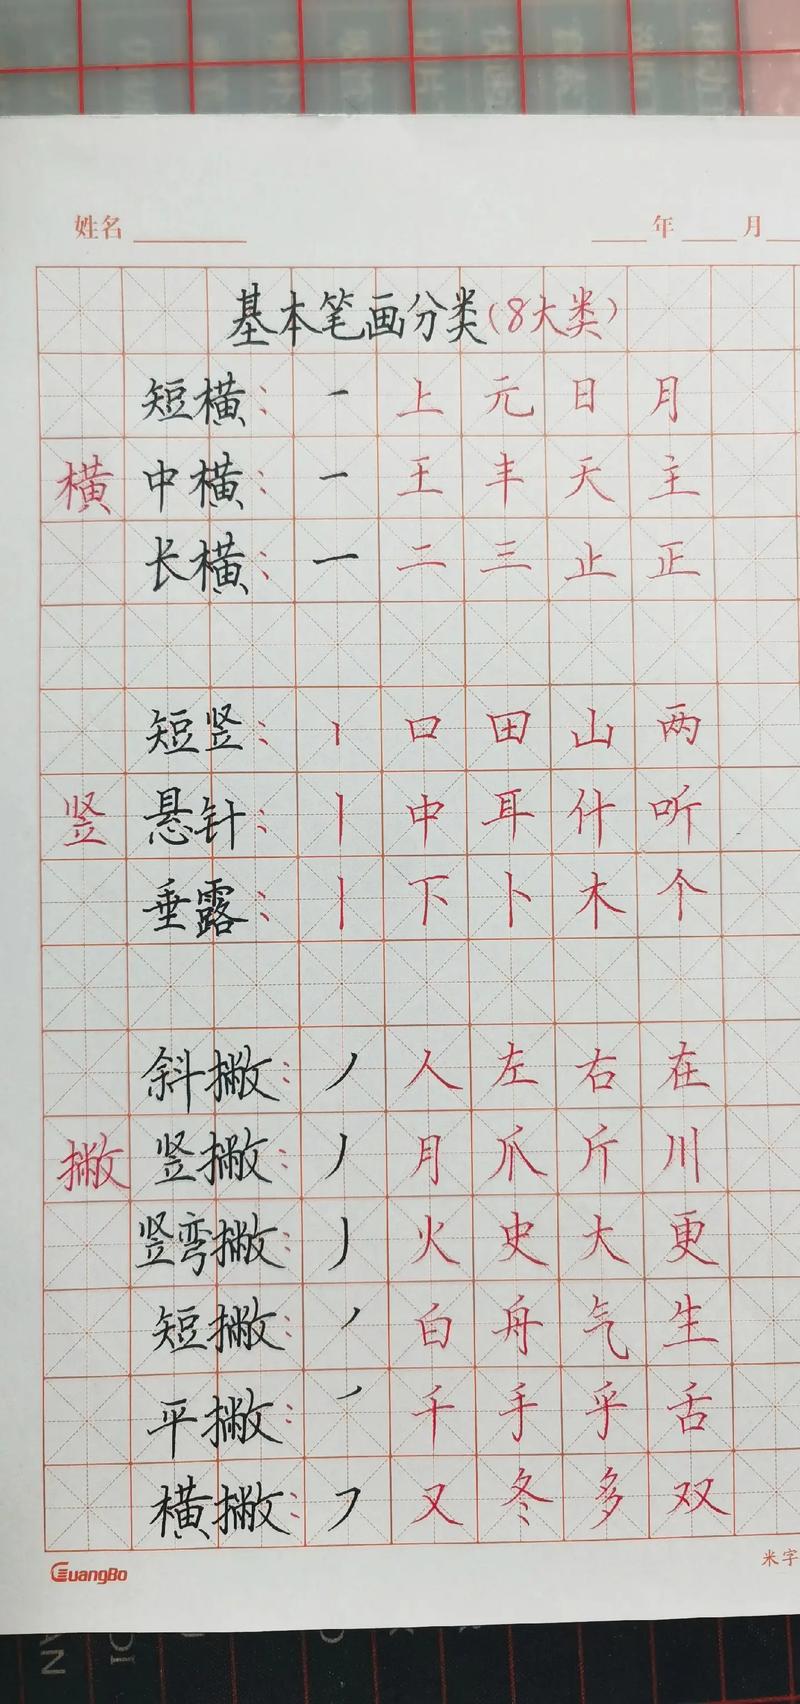 姓名 年 月
基本笔画分类(8大类)
短横: 一 上 元 日 月
横 中横: 一 王 丰 天 主
长横: 一 二 三 止 正
短竖: 丨 口 田 山 两
竖 悬针: 丨 中 耳 什 听
垂露: 丨 下 卜 木 个
斜撇: 丿 人 左 右 在
撇 竖撇: 丿 月 爪 斤 川
竖弯撇: 丿 火 史 大 更
短撇: 丿 白 舟 气 生
平撇: 丿 千 手 乎 舌
横撇: ㇇ 又 冬 多 双
GuangBo 米字